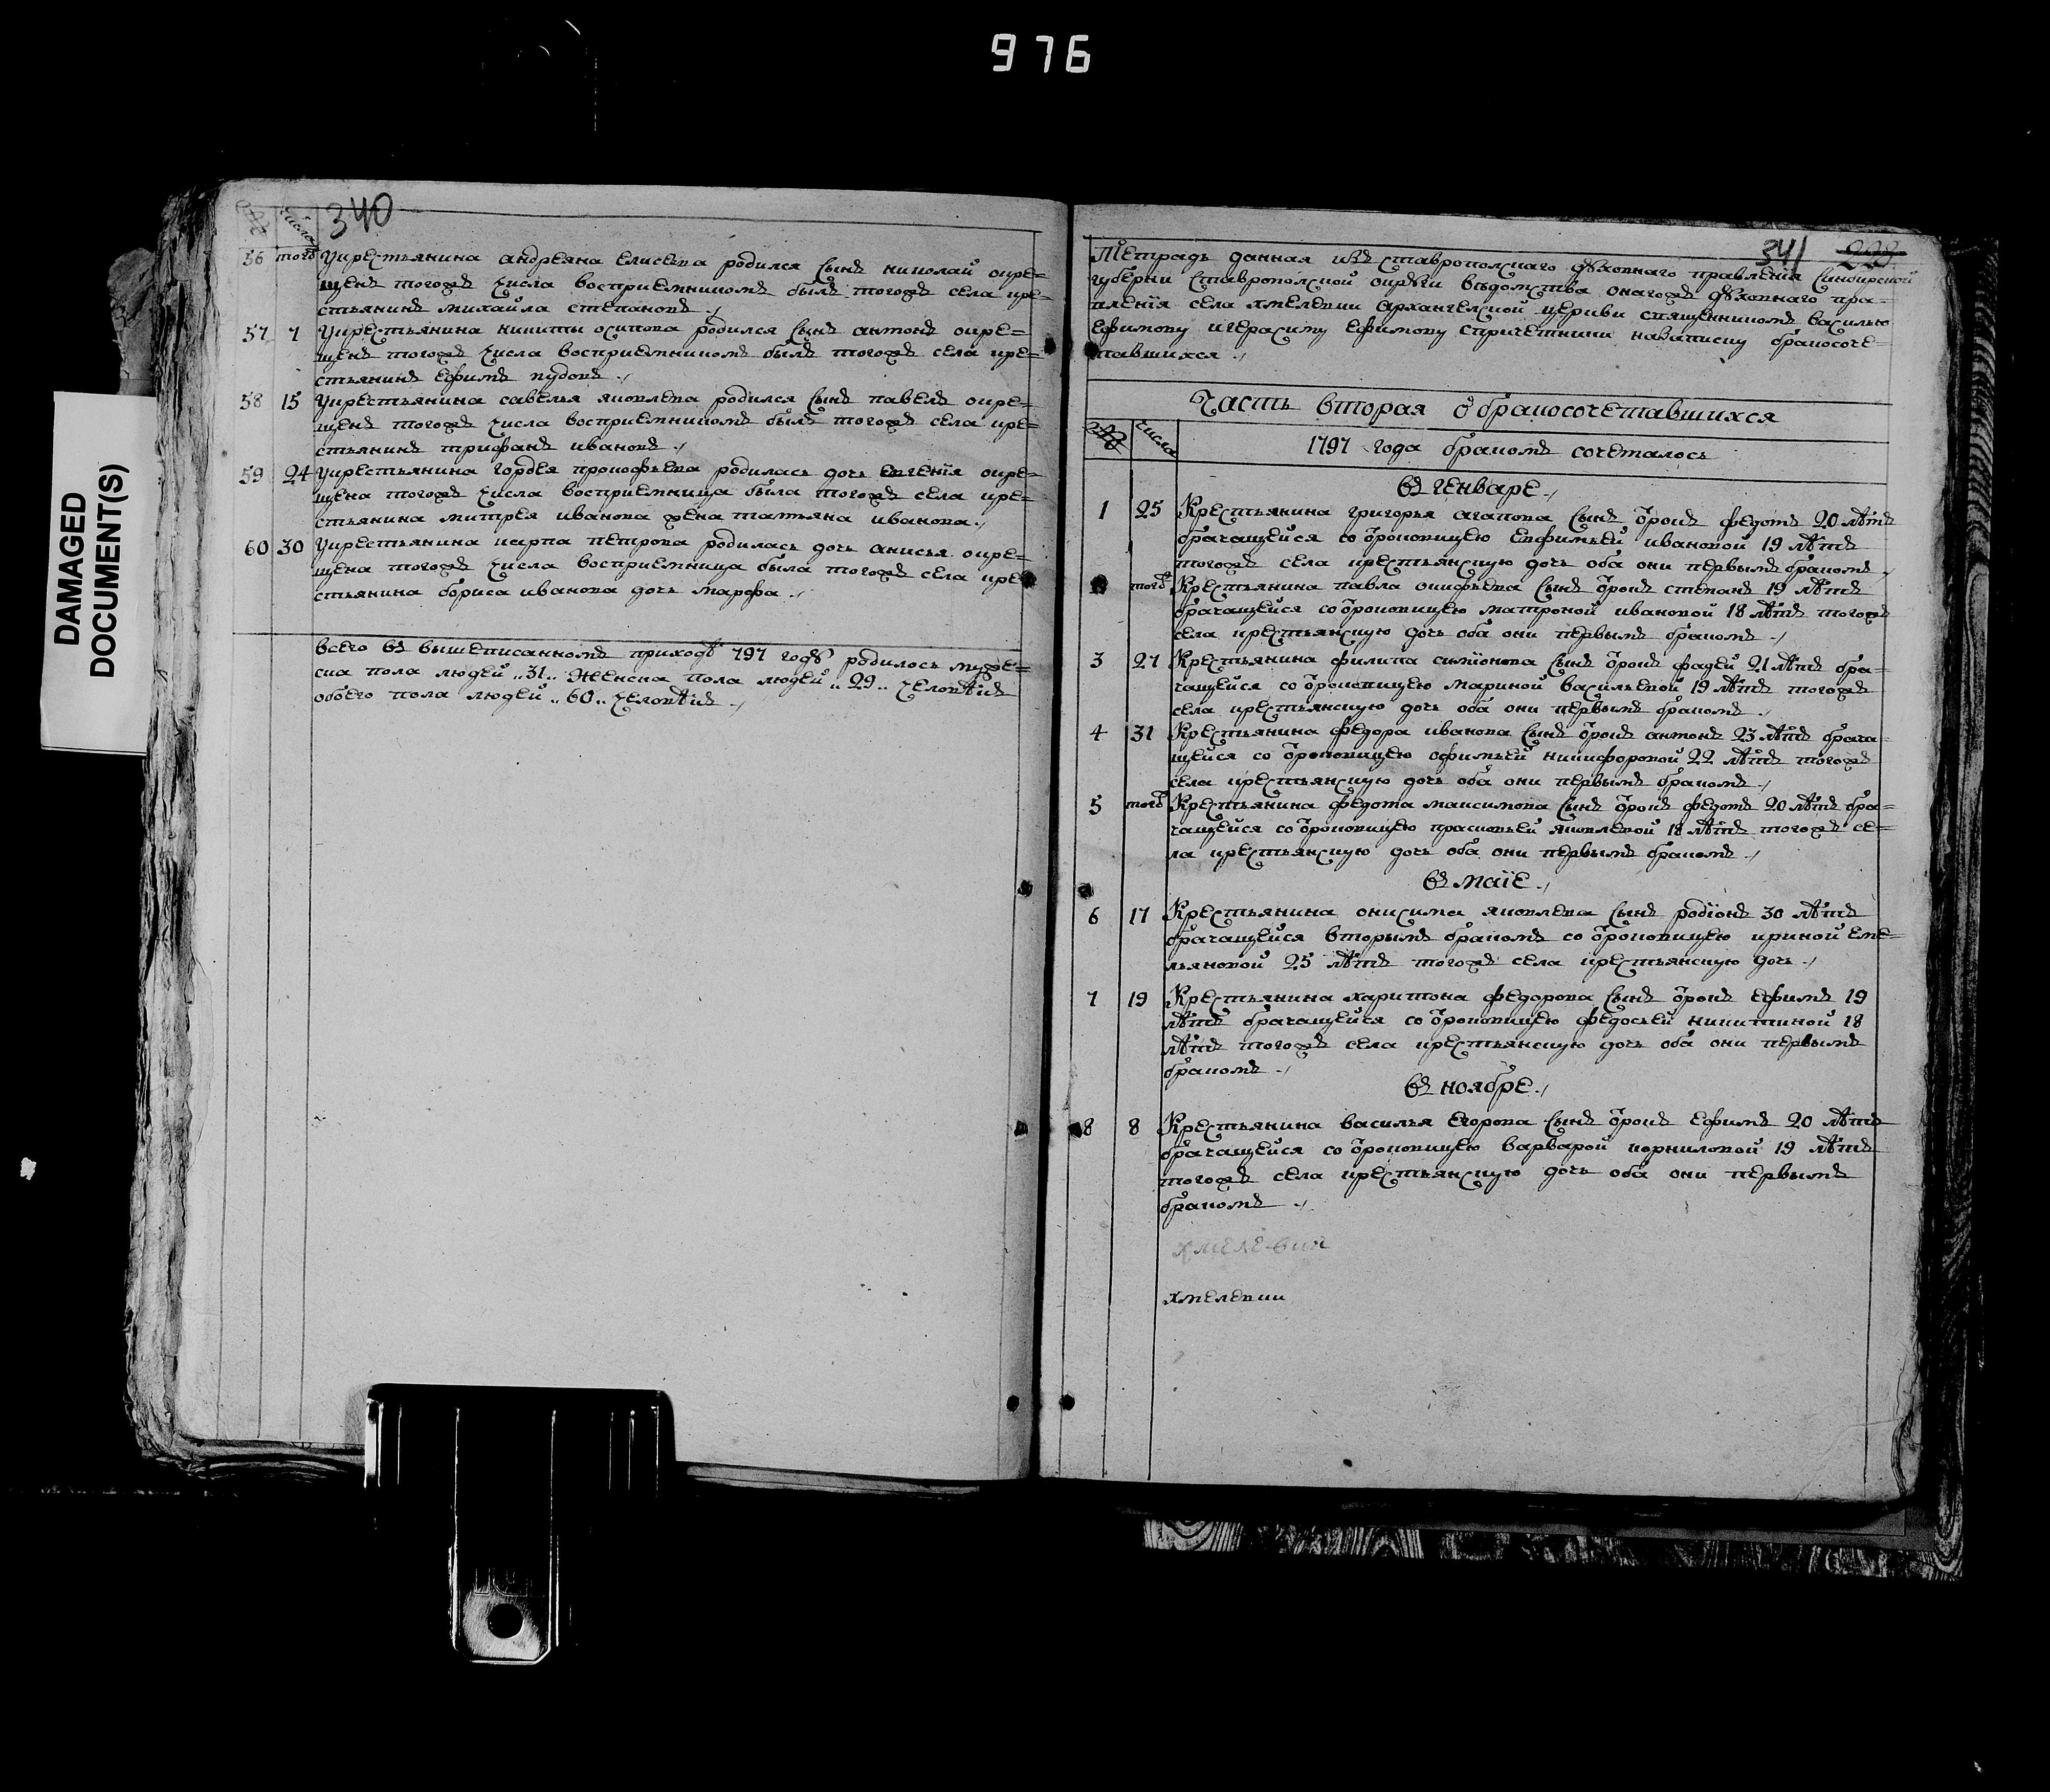 976
DAMAGED
DOCUMENT(S)
числа
340
56 тогѡ Укрестьянина андреяна елисеева родился сынъ николай окре=
щенъ тогожъ числа восприемникомъ былъ тогожъ села кре=
стьянинъ михайла степановъ ./
57 7 Укрестьянина никиты осипова родился сынъ антонъ окре=
щенъ тогожъ числа восприемникомъ былъ тогожъ села кре=
стьянинъ ефимъ пудовъ ./
58 15 Укрестьянина савелья яковлева родился сынъ павелъ окре=
щенъ тогожъ числа восприемникомъ былъ тогожъ села кре=
стьянинъ трифанъ ивановъ ./
59 24 Укрестьянина гордея прокофьева родилась дочь евгенїя окре=
щена тогожъ числа восприемница была тогожъ села кре=
стьянина митрея иванова жена татьяна иванова ./
60 30 Укрестьянина карпа петрова родилась дочь анисья окре=
щена тогожъ числа восприемница была тогожъ села кре
стьянина бориса иванова дочь марфа ./
всего въ вышеписанномъ приходѣ 797 годѣ родилось муже=
ска пола людей „31„ женска пола людей „29„ человѣкъ
обоего пола людей „60„ человѣкъ ./
341 223
Тетрадь данная изъ ставропольскаго духовнаго правленїя синбирской
губерни ставропольской округи ведомства онагожъ духовнаго пра=
вленїя села хмелевки архангелской церкви священникомъ василью
ефимову игерасиму ефимову спричетники назаписку бракосоче=
тавшихся ./
Часть вторая о бракосочетавшихся
числа
1797 года бракомъ сочеталось
въ генваре ./
1 25 Крестьянина григорья агапова сынъ отрокъ федотъ 20 лѣтъ
брачащейся со отроковицею евфимьей ивановой 19 лѣтъ
тогожъ села крестьянскую дочь оба они первымъ бракомъ ./
тогѡ Крестьянина павла онифьева сынъ отрокъ степанъ 19 лѣтъ
брачащейся со отроковицею матроной ивановой 18 лѣтъ тогожъ
села крестьянскую дочь оба они первымъ бракомъ ./
3 27 Крестьянина филипа симïонова сынъ отрокъ фадей 21 лѣтъ бра=
чащейся со отроковицею мариной васильевой 19 лѣтъ тогожъ
села крестьянскую дочь оба они первымъ бракомъ ./
4 31 Крестьянина федора иванова сынъ отрокъ антонъ 23 лѣтъ брача=
щейся со отроковицею офимьей никифоровой 22 лѣтъ тогожъ
села крестьянскую дочь оба они первымъ бракомъ ./
5 тогѡ Крестьянина федота максимова сынъ отрокъ федотъ 20 лѣтъ бра=
чащейся со отроковицею прасковьей яковлевой 18 лѣтъ тогожъ се=
ла крестьянскую дочь оба они первымъ бракомъ ./
въ маїе ./
6 17 Крестьянина онисима яковлева сынъ родїонъ 30 лѣтъ
брачащейся вторымъ бракомъ со отроковицею ириной еме=
льяновой 25 лѣтъ тогожъ села крестьянскую дочь ./
7 19 Крестьянина харитона федорова сынъ отрокъ ефимъ 19
лѣтъ брачащейся со отроковицею федосьей никитиной 18
лѣтъ тогожъ села крестьянскую дочь оба они первымъ
бракомъ ./
въ ноябре ./
8 8 Крестьянина василья егорова сынъ отрокъ ефимъ 20 лѣтъ
брачащейся со отроковицею варварой корниловой 19 лѣтъ
тогожъ села крестьянскую дочь оба они первымъ
бракомъ ./
хмелевки
хмелевки